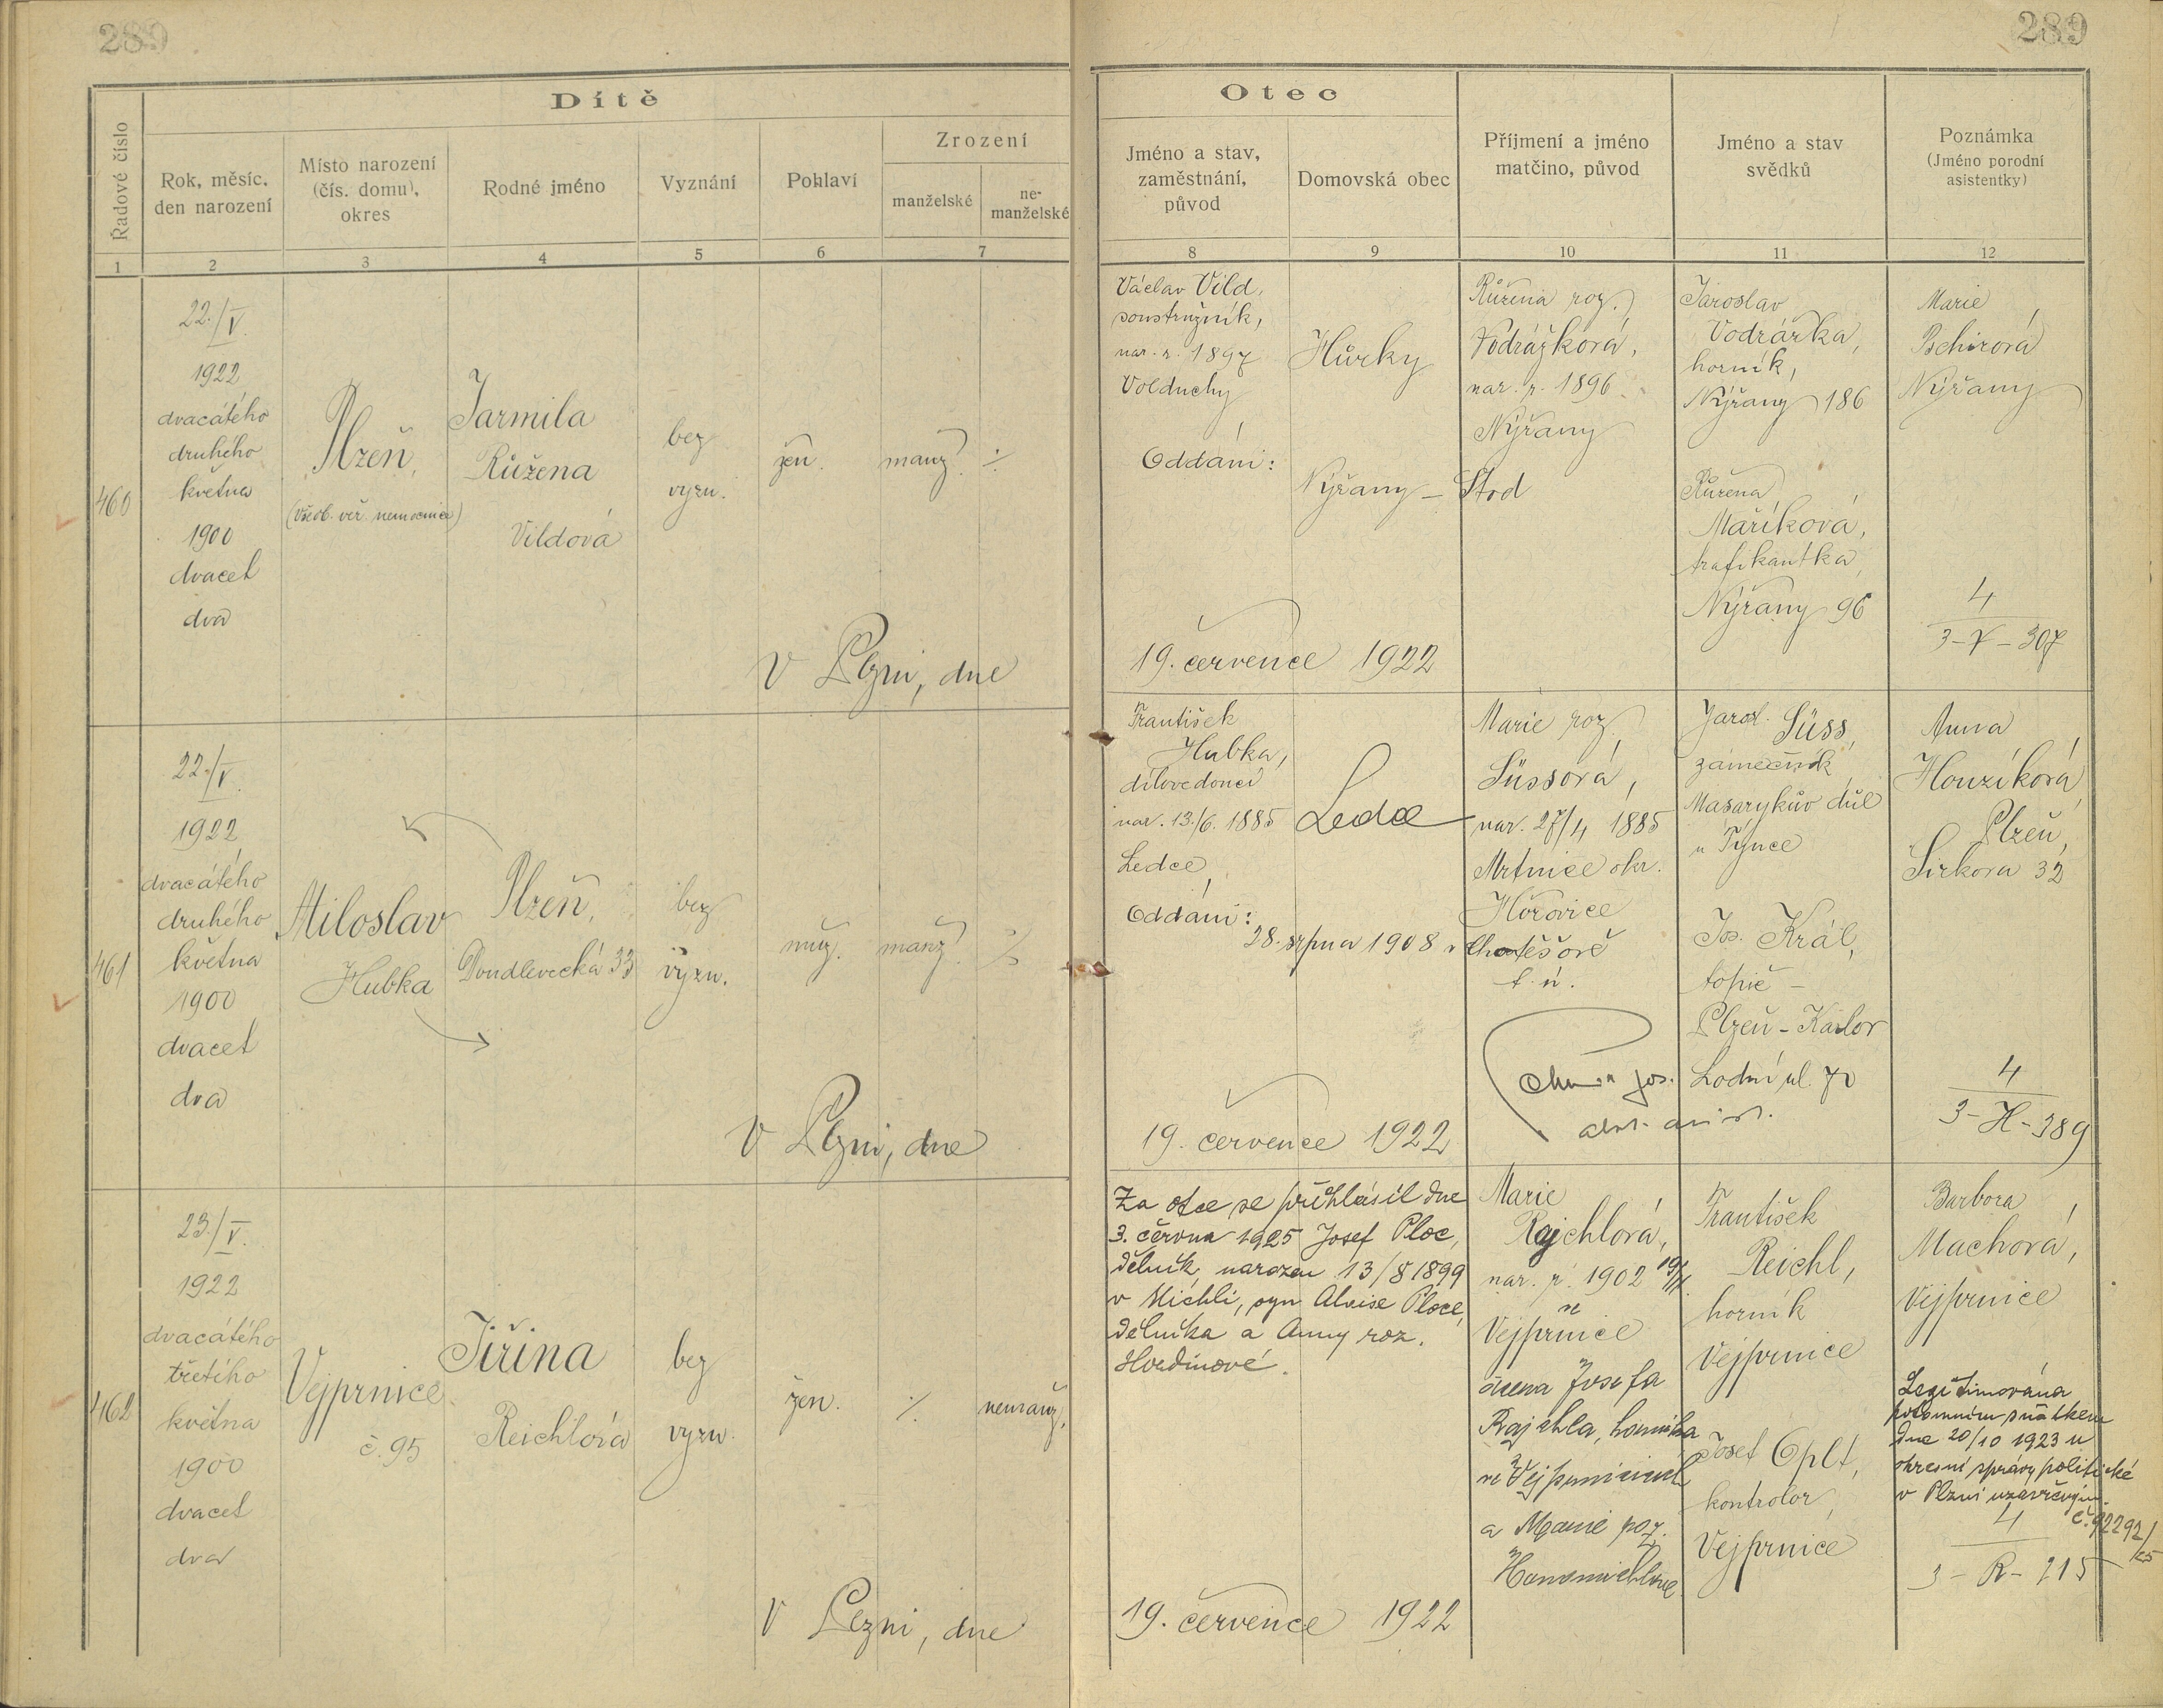 289
289
Dítě
Řadové číslo
Rok, měsíc,
den narození
Místo narození
(čís. domu),
okres
Rodné jméno
Vyznání
Pohlaví
Zrození
manželské
ne-
manželské
1
2
3
4
5
6
7
Otec
Jméno a stav,
zaměstnání,
původ
Domovská obec
Příjmení a jméno
matčino, původ
Jméno a stav
svědků
Poznámka
(Jméno porodní
asistentky)
8
9
10
11
12
460
22./V.
1922
dvacátého
druhého
května
1900
dvacet
dva
Plzeň,
(Všeob. veř. nemocnice)
Jarmila
Růžena
Vildová
bez
vyzn.
žen.
manž.
V Plzni, dne
Václav Vild,
soustružník,
nar. r. 1897
Volduchy
Oddáni:
Hůrky
Nýřany - Stod
19. července 1922
Růžena roz.
Vodrážková,
nar. r. 1896
Nýřany
Jaroslav
Vodrážka,
horník,
Nýřany 186
Růžena
Maříková,
trafikantka,
Nýřany 96
Marie
Nýřany
4
3-V-307
461
22./V.
1922
dvacátého
druhého
května
1900
dvacet
dva
Miloslav
Hubka
Plzeň,
Doudlevecká 33
bez
vyzn.
muž.
manž.
V Plzni, dne
František
Hubka,
dílovedoucí
nar. 13./6. 1885
Ledce
Oddáni:
28. srpna 1908 v Chotěšově
f. ú.
Ledce
19. července 1922
Marie roz.
Süssová,
nar. 27/4 1885
Mrtnice okr.
Hořovice
Jarosl. Süss,
zámečník
Masarykův důl
u Týnce
Jos. Král,
topič -
Plzeň - Karlov
Lodní ul. 70
Anna
Houzíková
Plzeň,
Sirkova 32
4
3-H-389
462
23./V.
1922
dvacátého
třetího
května
1900
dvacet
dva
Vejprnice
č. 95
Jiřina
Reichlová
bez
vyzn.
žen.
nemanž.
V Plzni, dne
Za otce se přihlásil dne
3. června 1925 Josef Ploc,
dělník, narozen 13/8 1899
v Michli, syn Aloise Ploce,
dělníka a Anny roz.
19. července 1922
Marie
Rajchlová,
nar. r. 1902
Vejprnice
dcera Josefa
Rajchla, horníka
ve Vejprnicích
a Marie roz.
František
Reichl,
horník
Vejprnice
Josef Oplt,
kontrolor,
Vejprnice
Barbora
Machová,
Vejprnice
Legitimována
dne 20/10 1923 u
okresní správy politické
v Plzni uzavřeným.
č. 92292/25
4
3-R-215